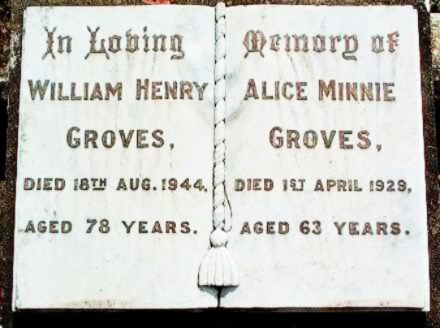 In Loving
WILLIAM HENRY
GROVES,
DIED 18TH AUG. 1944,
AGED 78 YEARS.
Memory of
ALICE MINNIE
GROVES,
DIED 1ST APRIL 1929,
AGED 63 YEARS.